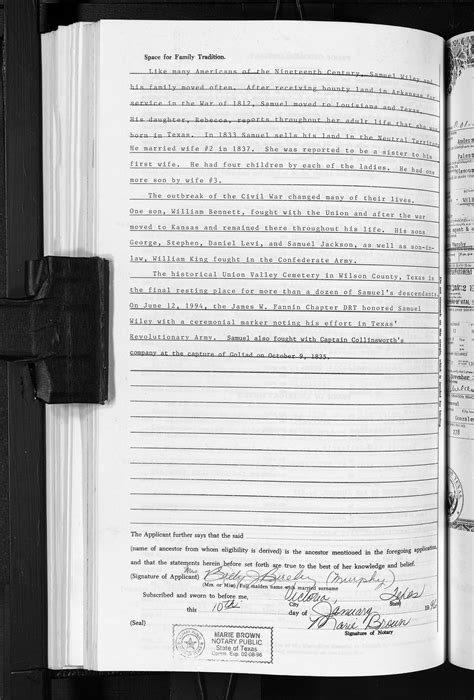 Space for Family Tradition.
Like many Americans of the Nineteenth Century, Samuel Wiley and
his family moved often. After receiving bounty land in Arkansas for
service in the War of 1812, Samuel moved to Louisiana and Texas.
His daughter, Rebecca, reports throughout her adult life that she was
born in Texas. In 1833 Samuel sells his land in the Neutral Territory
He married wife #2 in 1837. She was reported to be a sister to his
first wife. He had four children by each of the ladies. He had one
more son by wife #3.
The outbreak of the Civil War changed many of their lives.
One son, William Bennett, fought with the Union and after the war
moved to Kansas and remained there throughout his life. His sons
George, Stephen, Daniel Levi, and Samuel Jackson, as well as son-in-
law, William King fought in the Confederate Army.
The historical Union Valley Cemetery in Wilson County, Texas is
the final resting place for more than a dozen of Samuel's descendants.
On June 12, 1994, the James W. Fannin Chapter DRT honored Samuel
Wiley with a ceremonial marker noting his effort in Texas'
Revolutionary Army. Samuel also fought with Captain Collinsworth's
company at the capture of Goliad on October 9, 1835.
The Applicant further says that the said
(name of ancestor from whom eligibility is derived) is the ancestor mentioned in the foregoing application,
and that the statements herein before set forth are true to the best of her knowledge and belief.
(Signature of Applicant) Mrs Billy J (Murphy)
(Mrs. or Miss) Full maiden name with married surname
Subscribed and sworn to before me, Victoria, Texas
City State
this 10th day of January 19
Marie Brown
(Seal) Signature of Notary
MARIE BROWN
NOTARY PUBLIC
State of Texas
Comm. Exp. 02-08-96